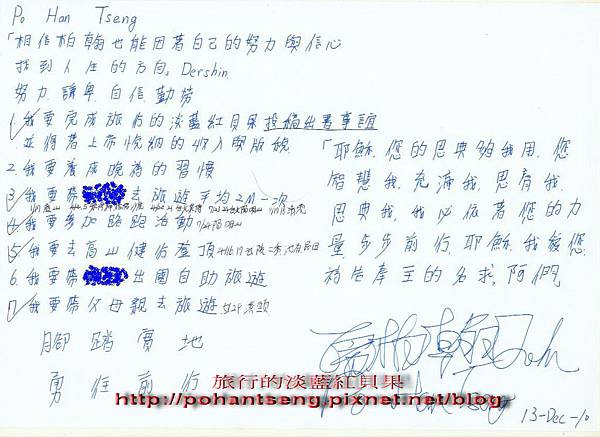 Po Han Tseng
「相信柏翰也能因著自己的努力與信心
找到人生的方向。Dershin.
努力.謙卑.自信.勤勞
1.我要完成旅行的淡藍紅貝果投稿出書事誼
並將著上帝悅納的收入與版稅
2.我要養成晚禱的習慣
3.我要帶 去旅遊平均2M一次
4.我要參加路跑活動
5.我要去高山健行登頂
6.我要帶 出國自助旅遊
7.我要帶父母親去旅遊
腳踏實地
勇往前行
「耶穌.您的恩典夠我用.您
智慧我.充滿我.恩膏我.
恩典我.我必依著您的力
量步步前行.耶穌.我敬您.
禱告奉主的名求.阿們」
13-Dec-10
旅行的淡藍紅貝果
http://pohantseng.pixnet.net/blog/